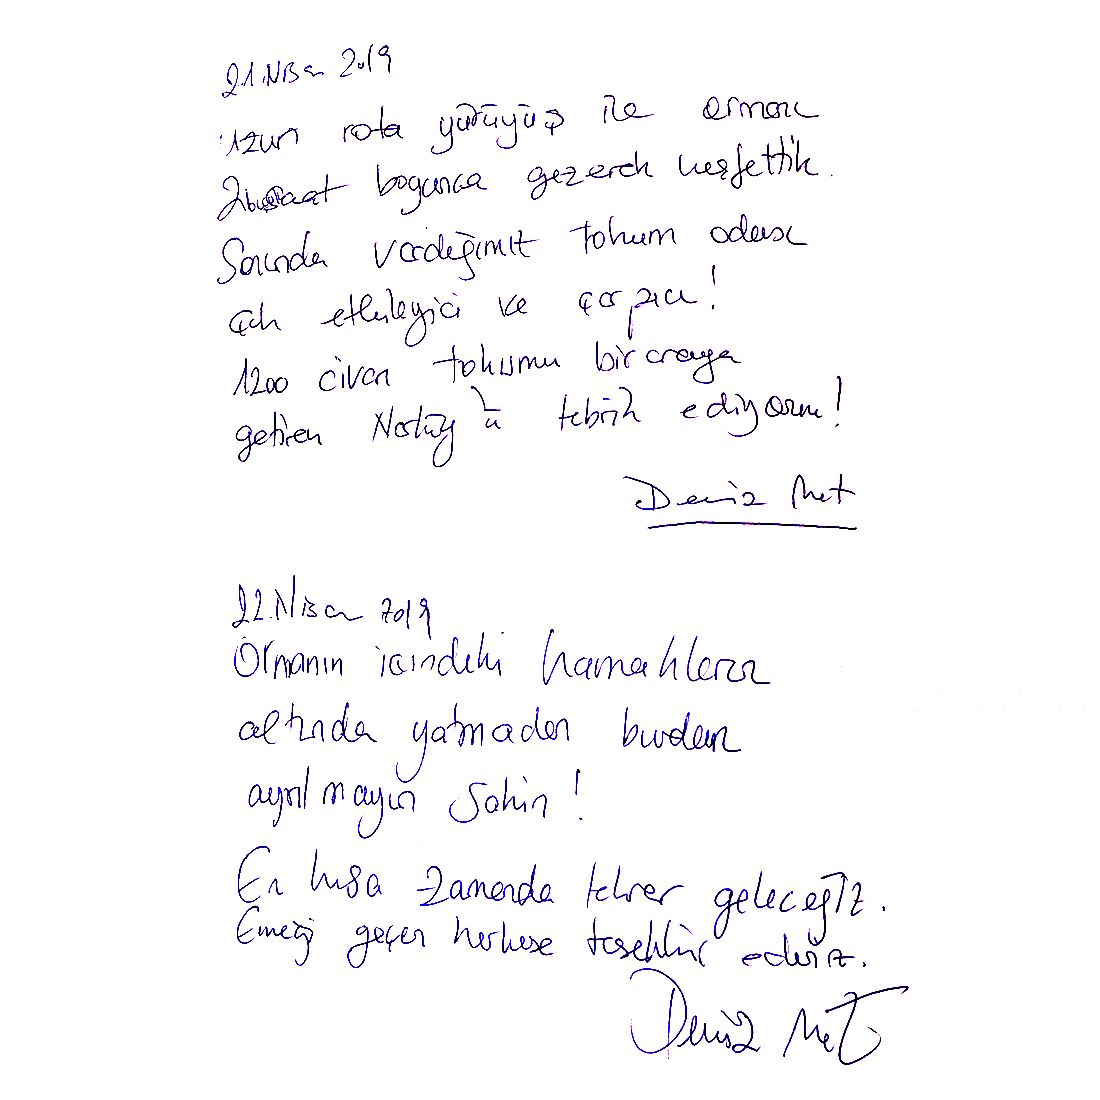 21.Nisan 2019
Uzun rota yürüyüş ile ormanı
2 saat boyunca gezerek keşfettik.
Sonunda vardığımız tohum odası
çok etkileyici ve çarpıcı!
1200 civarı tohumu bir araya
getiren Narköy'ü tebrik ediyorum!
Deniz Met
22.Nisan 2019
Ormanın içindeki hamakların
altında yatmadan burdan
ayrılmayın sakin!
En kısa zamanda tekrar geleceğiz.
Emeği geçen herkese teşekkür ederiz.
Deniz Met